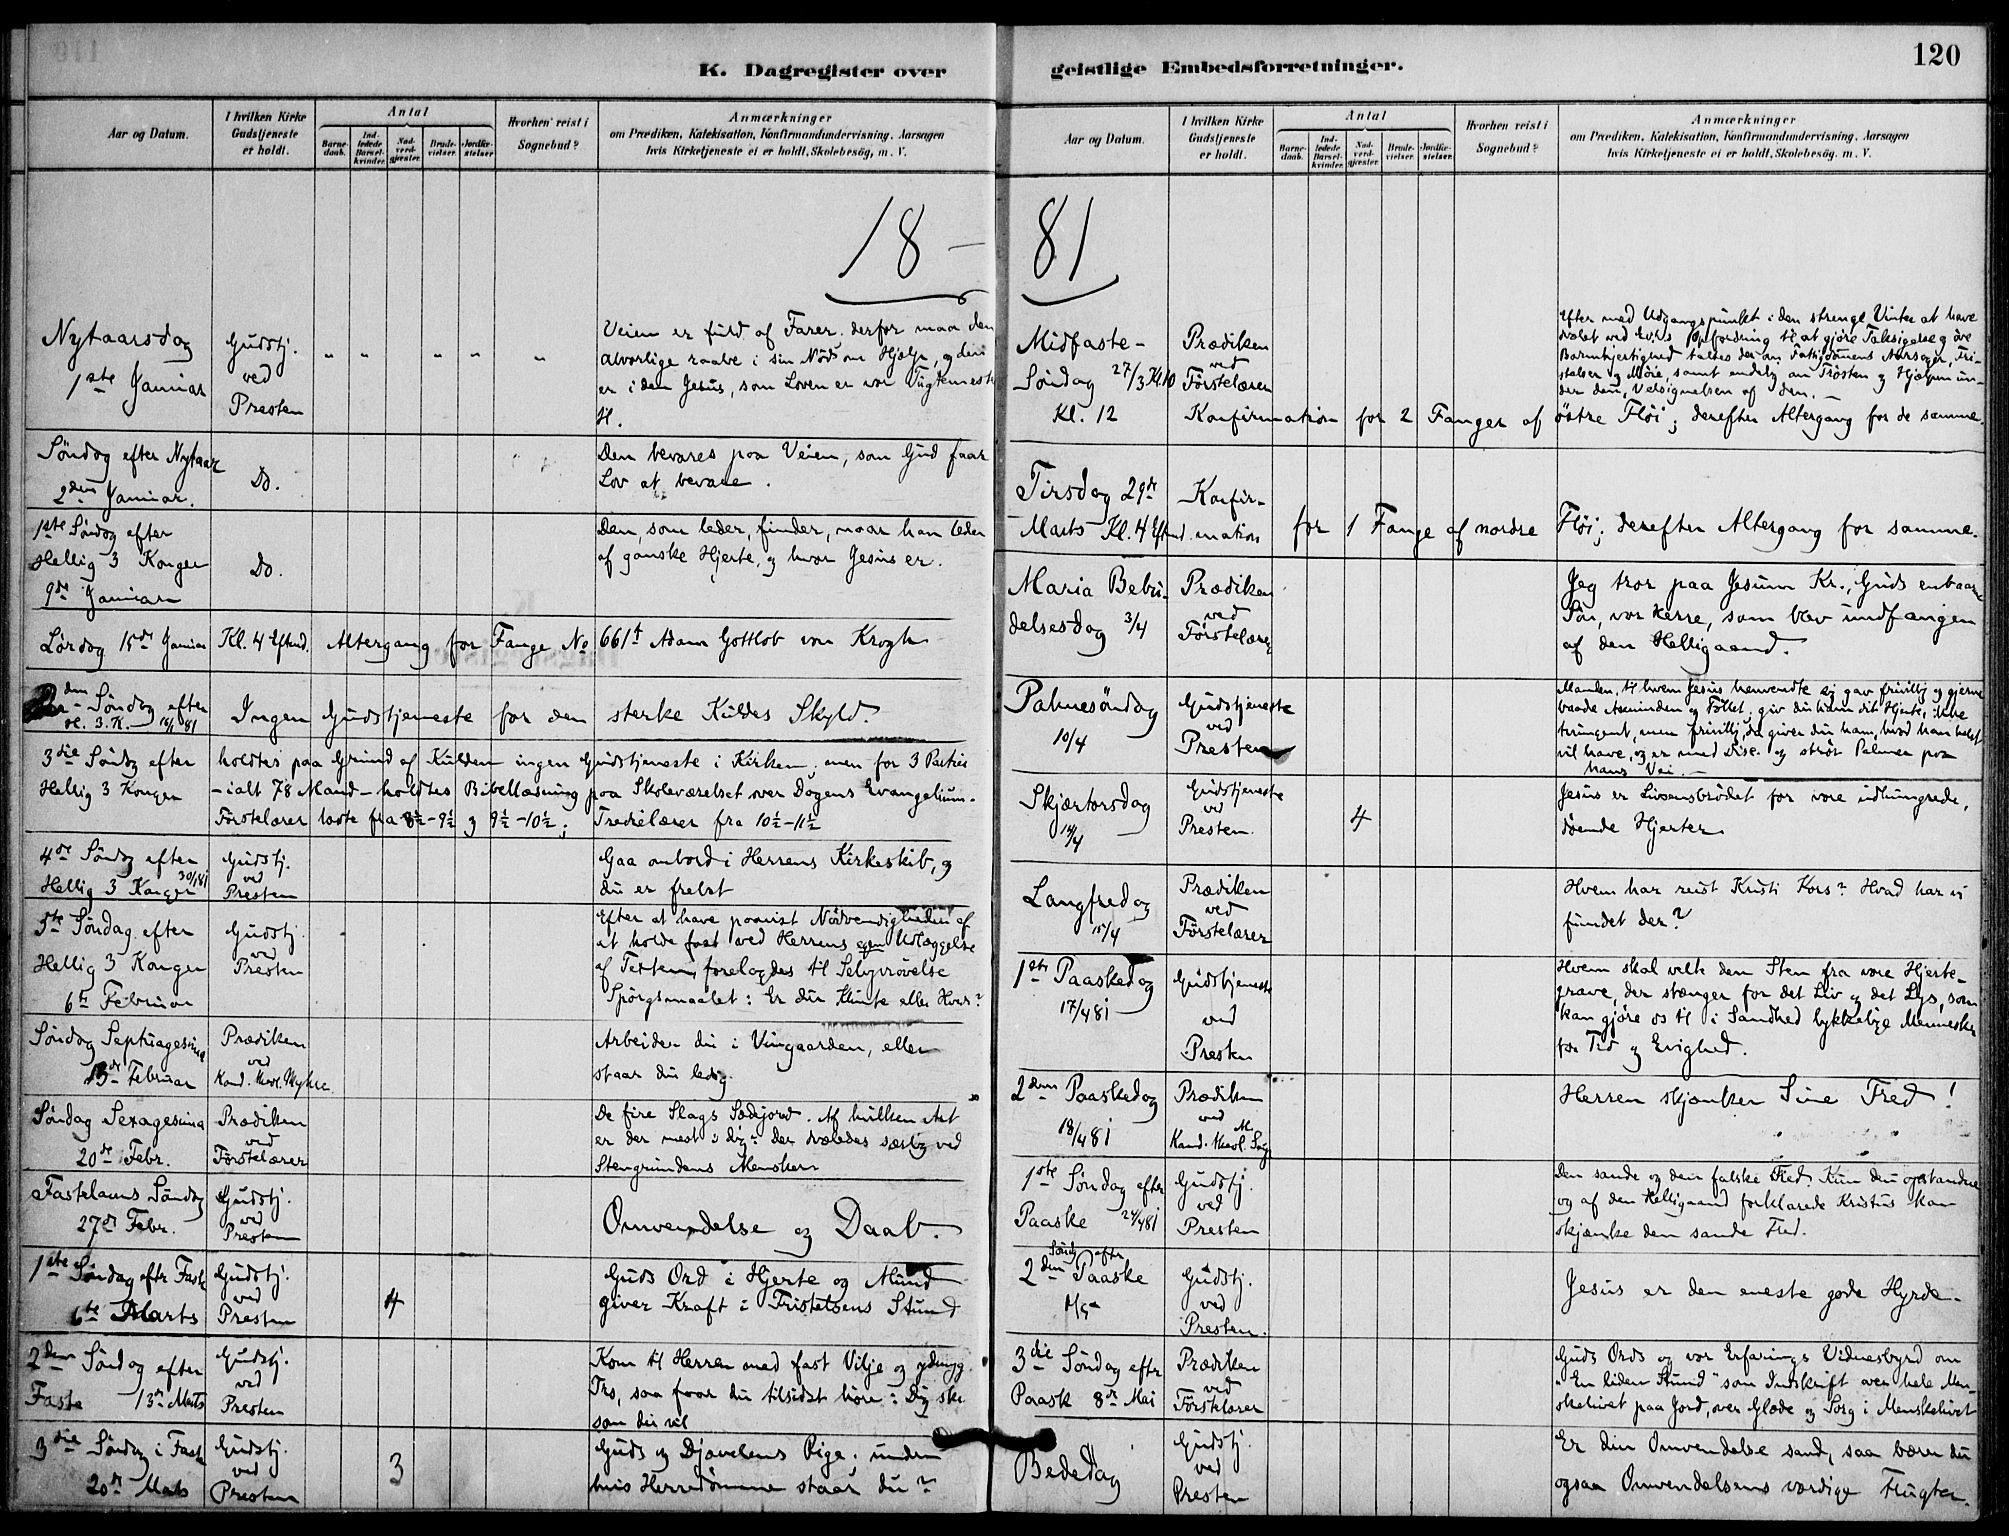 120
K. Dagregister over
geistlige Embedsforretninger.
Aar og Datum.
I hvilken Kirke
Gudstjeneste
er holdt.
Antal
Barne-
daab.
Ind-
ledede
Barsel-
kvinder.
Nad-
verd-
gjæster.
Brude-
vielser.
Jordfæ-
stelser
Hvorhen reist i
Sognebud?
Anmærkninger
om Prædiken, Katekisation, Konfirmandundervisning, Aarsagen
hvis Kirketjeneste ei er holdt, Skolebesög, m. V.
18 –
Nytaarsdag
1ste Januar
Gudstj.
ved
Presten
" " " " "
Veien er fuld af Farer. derfor maa den
alvorlige raabe i sin Nöd om Hjælp, og den
er i den Jesus, som Loven er vor Tugtemester
til.
Söndag efter Nytaar
2den Januar.
Do.
Den bevares paa Veien, som Gud faar
Lov at bevare.
1ste Söndag efter
Hellig 3 Konger
9de Januar
Do.
Den, som leder, finder, naar han leder
af ganske Hjerte, og hvor Jesus er.
Lördag 15de Januar Kl. 4 Eftmd. Altergang for Fange No 661t Adam Gottlob von Krogh
2den Söndag efter
H. 3. K. 16/1 81
Ingen Gudstjeneste for den sterke Kuldes Skyld.
3die Söndag efter
Hellig 3 Konger
holdtes paa Grund af Kulden ingen Gudstjeneste i Kirken; men for 3 Partier
– ialt 78 Mand – holdtes Bibellæsning paa Skoleværelset over Dagens Evangelium.
Förstelærer læste fra 8½–9½ og 9½–10½; Tredielærer fra 10½–11½
4de Söndag efter
Hellig 3 Konger 30/1 81
Gudstj.
ved
Presten
Gaa ombord i Herrens Kirkeskib, og
du er frelst
5te Söndag efter
Hellig 3 Konger
6te Februar
Gudstj.
ved
Presten
Efter at have paavist Nödvendigheden af
at holde fast ved Herrens egen Udlæggelse
af Texten, forelagdes til Selvprövelse
Spörgsmaalet: Er du Klinte eller Hvede?
Söndag Septuagesima
13de Februar
Prædiken
ved
Kand. theol. Myhre
Arbeider du i Vingaarden, eller
staar du ledig.
Söndag Sexagesima
20de Febr.
Prædiken
ved
Förstelærer
De fire Slags Sædejord. Af hvilken Art
er der mest i dig? der dvæledes særlig ved
Stengrundens Mennesker
Fastelavns Söndag
27de Febr.
Gudstj.
ved
Presten
Omvendelse og Daab.
1ste Söndag efter Faste
6te Marts
Gudstj.
ved
Presten
4
Guds Ord i Hjerte og Mund
giver Kraft i Fristelsens Stund
2den Söndag efter
Faste 13de Marts
Gudstj.
ved
Presten
Kom til Herren med fast Vilje og ydmyg
Tro, saa faar du tilsidst höre: Dig ske
som du vil
3die Söndag i Faste
20de Marts
Gudstj.
ved
Presten
3
Guds og Djævelens Rige; under
hvis Herredömme staar du?
Aar og Datum.
I hvilken Kirke
Gudstjeneste
er holdt.
Antal
Barne-
daab.
Ind-
ledede
Barsel-
kvinder.
Nad-
verd-
gjæster.
Brude-
vielser.
Jordfæ-
stelser.
Hvorhen reist i
Sognebud?
Anmærkninger
om Prædiken, Katekisation, Konfirmandundervisning, Aarsagen
hvis Kirketjeneste ei er holdt, Skolebesög, m. V.
81
Midfaste-
Söndag 27/3 Kl. 10
Prædiken
ved
Förstelærer
Efter med Udgangspunkt i den strenge Vinter at have
dvælet ved Guds Opfordring til at gjöre Taksigelse og öve
Barmhjertighed taltes der om Fattigdommens Aarsager, Fri-
stelser og Möie, samt endelig om Trösten og Hjælpen un-
der den, Velsignelsen af den. –
Kl. 12 Konfirmation for 2 Fanger af östre Flöi; derefter Altergang for de samme.
Tirsdag 29de
Marts Kl. 4 Eftmd.
Konfir-
mation for 1 Fange af nordre Flöi; derefter Altergang for samme.
Maria Bebu-
delsesdag 3/4
Prædiken
ved
Förstelærer
Jeg tror paa Jesum Kr., Guds enbaarne
Sön, vor Herre, som blev undfangen
af den Helligaand.
Palmesöndag
10/4
Gudstjeneste
ved
Presten
Manden, til hvem Jesus henvendte sig gav frivillig og gjerne
baade Aseninden og Follet. giv du ham dit Hjerte, ikke
tvungent, men frivillig, da giver du ham, hvad han helst
vil have, og er med Disc. og strör Palmer paa
hans Vei. –
Skjærtorsdag
14/4
Gudstjeneste
ved
Presten.
4
Jesus er Livsensbrödet for vore udhungrede,
döende Hjerter
Langfredag
15/4
Prædiken
ved
Förstelærer
Hvem har reist Kristi Kors? Hvad har vi
fundet der?
1ste Paaskedag
17/4 81
Gudstjeneste
ved
Presten
Hvem skal velte den Sten fra vore Hjerte-
grave, der stænger for det Liv og det Lys, som
kan gjöre os til i Sandhed lykkelige Mennesker
for Tid og Evighed.
2den Paaskedag
18/4 81
Prædiken
ved
Kand. theol.
Herren skjænker Sine Fred!
1ste Söndag efter
Paaske 24/4 81
Gudstj.
ved
Presten
Den sande og den falske Fred. Kun den opstandne
og af den Helligaand forklarede Kristus kan
skjænke den sande Fred.
2den Söndag efter
Paaske
1/5
Gudstj.
ved
Presten.
Jesus er den eneste gode Hyrde.
3die Söndag efter
Paaske 8de Mai
Prædiken
ved
Förstelærer
Guds Ords og vor Erfarings Vidnesbyrd om
"En liden Stund" som Indskrift over hele Men-
skelivet paa Jord, over Glæde og Sorg i Menskelivet
Bededag
Gudstj.
ved
Presten
Er din Omvendelse sand, saa bærer du
ogsaa Omvendelsens værdige Frugter.